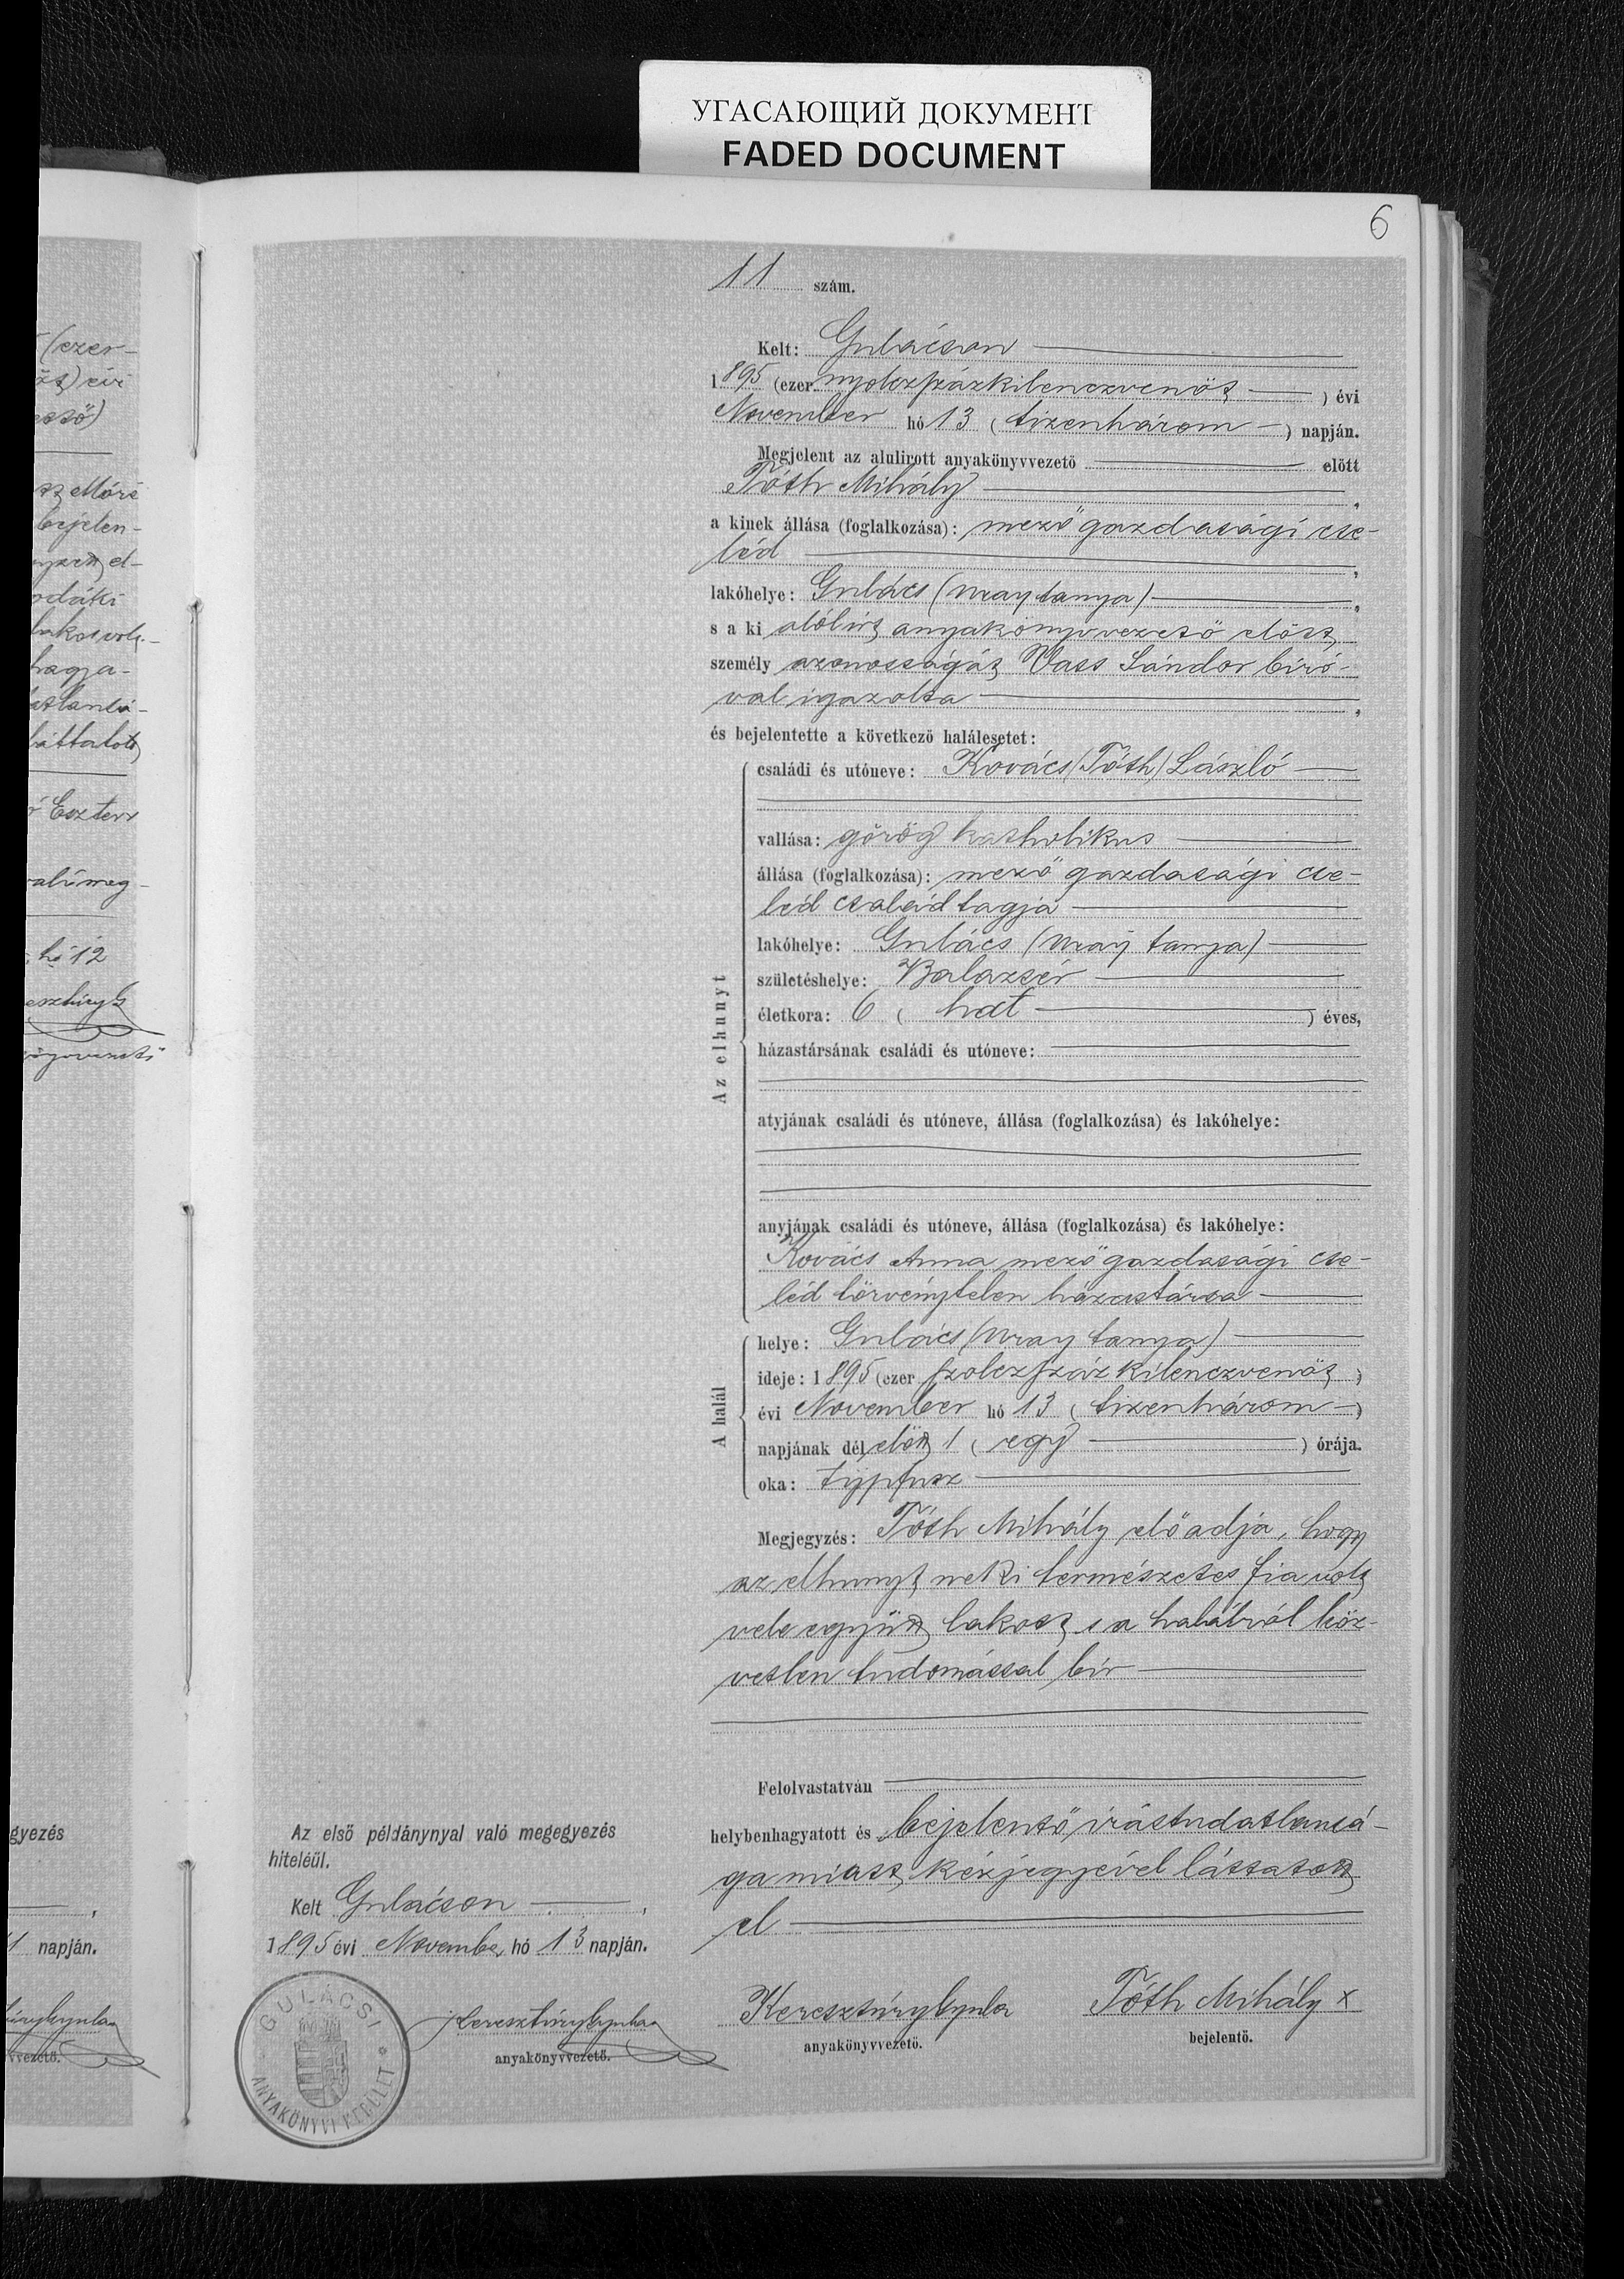 УГАСАЮЩИЙ ДОКУМЕНТ
FADED DOCUMENT
6
11 szám.
Kelt: Gulácson
1895 (ezer nyolczszázkilenczvenöt) évi
November hó 13 (tizenhárom) napján.
Megjelent az alulirott anyakönyvvezető előtt
Tóth Mihály,
a kinek állása (foglalkozása): mező gazdasági cse-
léd,
lakóhelye: Gulács (Uray tanya),
s a ki alólírt anyakönyvvezető előtt
személy azonosságát Vass Sándor bíró-
val igazolta,
és bejelentette a következő halálesetet:
Az elhunyt
családi és utóneve: Kovács/Tóth/László
vallása: görög katholikus
állása (foglalkozása): mező gazdasági cse-
léd család tagja
lakóhelye: Gulács (Uray tanya)
születéshelye: Balazsér
életkora: 6 (hat) éves,
házastársának családi és utóneve:
atyjának családi és utóneve, állása (foglalkozása) és lakóhelye:
anyjának családi és utóneve, állása (foglalkozása) és lakóhelye:
Kovács Anna mező gazdasági cse-
léd törvénytelen házastársa
A halál
helye: Gulács (Uray tanya)
ideje: 1895 (ezer szolczszázkilenczvenöt)
évi November hó 13 (tizenhárom)
napjának dél előtt 1 (egy) órája.
oka: typhusz
Megjegyzés: Tóth Mihály előadja, hogy
az elhunyt neki természetes fia volt
vele együtt lakott s a halálról köz-
vetlen tudomással bír
Felolvastatván
helybenhagyatott és bejelentő írástudatlansá-
ga miatt kézjegyével láttatott
el
Keresztury Gyula
anyakönyvvezető.
Tóth Mihály x
bejelentő.
Az első példánynyal való megegyezés
hiteléül.
Kelt Gulácson,
1895 évi November hó 13 napján.
Keresztury Gyula
anyakönyvvezető.
GULÁCSI
ANYAKÖNYVI KERÜLET
(ezer-
évi
Eszter
hó 12
gyezés
napján.